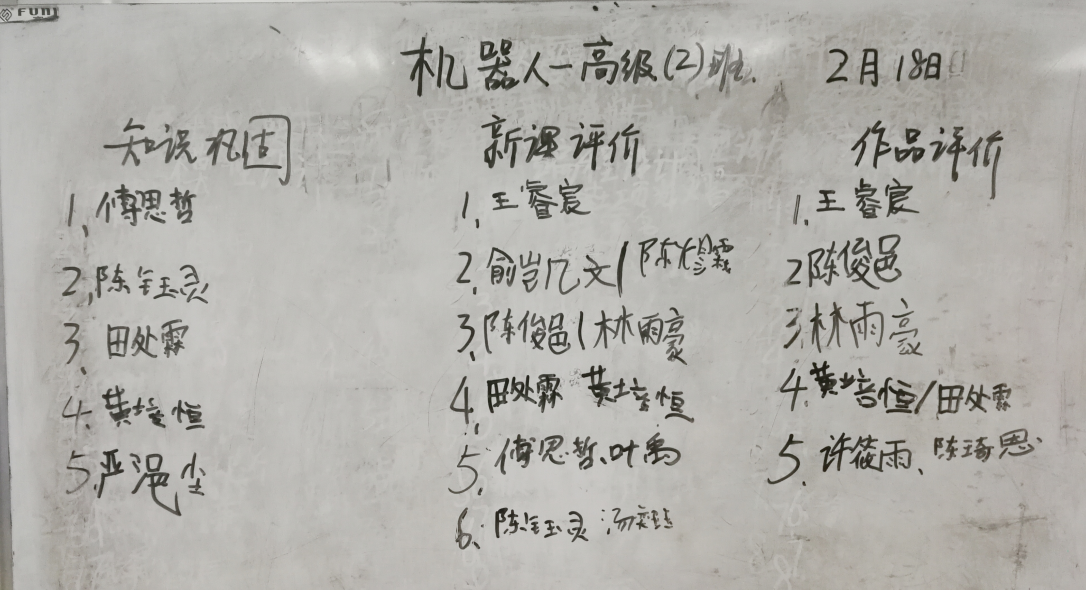 FUNJ
机器人一高级(2)班. 2月18日
知识巩固
1, 傅思哲
2, 陈钰灵
3, 田处霖
4. 黄培恒
5. 严浥尘
新课评价
1, 王睿宸
2, 俞岂凡文/陈
3, 陈俊邑/林雨豪
4, 田处霖 黄培恒
5. 傅思哲、叶禹
6. 陈钰灵 汤
作品评价
1. 王睿宸
2 陈俊邑
3. 林雨豪
4. 黄培恒/田处霖
5. 许筱雨、陈琦恩